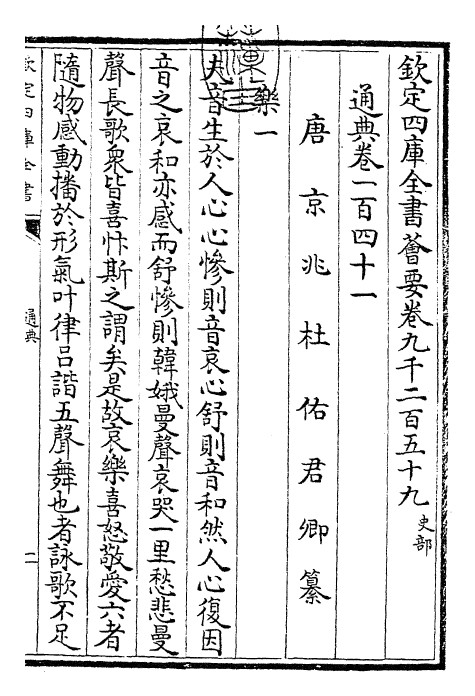 欽定四庫全書薈要卷九千二百五十九 史部
通典卷一百四十一
唐京兆杜佑君卿纂
樂一
夫音生於人心心慘則音哀心舒則音和然人心復因
音之哀和亦感而舒慘則韓娥曼聲哀哭一里愁悲曼
聲長歌衆皆喜忭斯之謂矣是故哀樂喜怒敬愛六者
隨物感動播於形氣叶律吕諧五聲舞也者詠歌不足
欽定四庫全書
通典